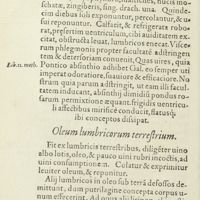 mochate, zingiberis, sing. drach. una. Quinde-
cim diebus soli exponuntur, percolantur, & u-
sui reponuntur. Calfacit, & refrigerata robo-
rat, præsertim uentriculum, cibi auiditatem ex-
citat, obstructa leuat, lumbricos enecat. Visce-
rum phlegmonis propter facultatē adstringen-
tem ex eodem conuenit. Quas uires, quia
Lib. 11. meth.
Pontico absinthio adhibet Gal. eo semper uti
imperat odoratiore, suauiore & efficaciore. No-
strum quia parum adstringit, ut etiam ad hunc
facultatem inducam, absinthij dimidij pondus ro-
sarum permixtione æquant. frigidis uentricu-
li affectibus mirificè conducit, flatusq́;
ibi conceptos dissipat.
Oleum lumbricorum terrestrium.
Fit ex lumbricis terrestribus, diligēter uino
albo lotis, oleo, & pauco uini rubri incoctis, ad
uini consumptionem. Colatur & exprimitur
leuiter oleum, & reponitur.
Alij lumbricos in oleo sub terra defossos de-
mittunt, dum putrilagine concepta corpus u-